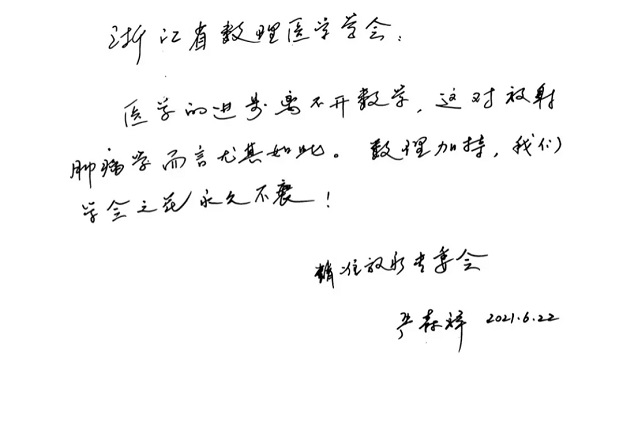 浙江省数理医学学会：
医学的进步离不开数学，这对放射
肿瘤学而言尤其如此。数理加持，我们
学会之花永久不衰！
精准放疗专委会
严森祥 2021.6.22